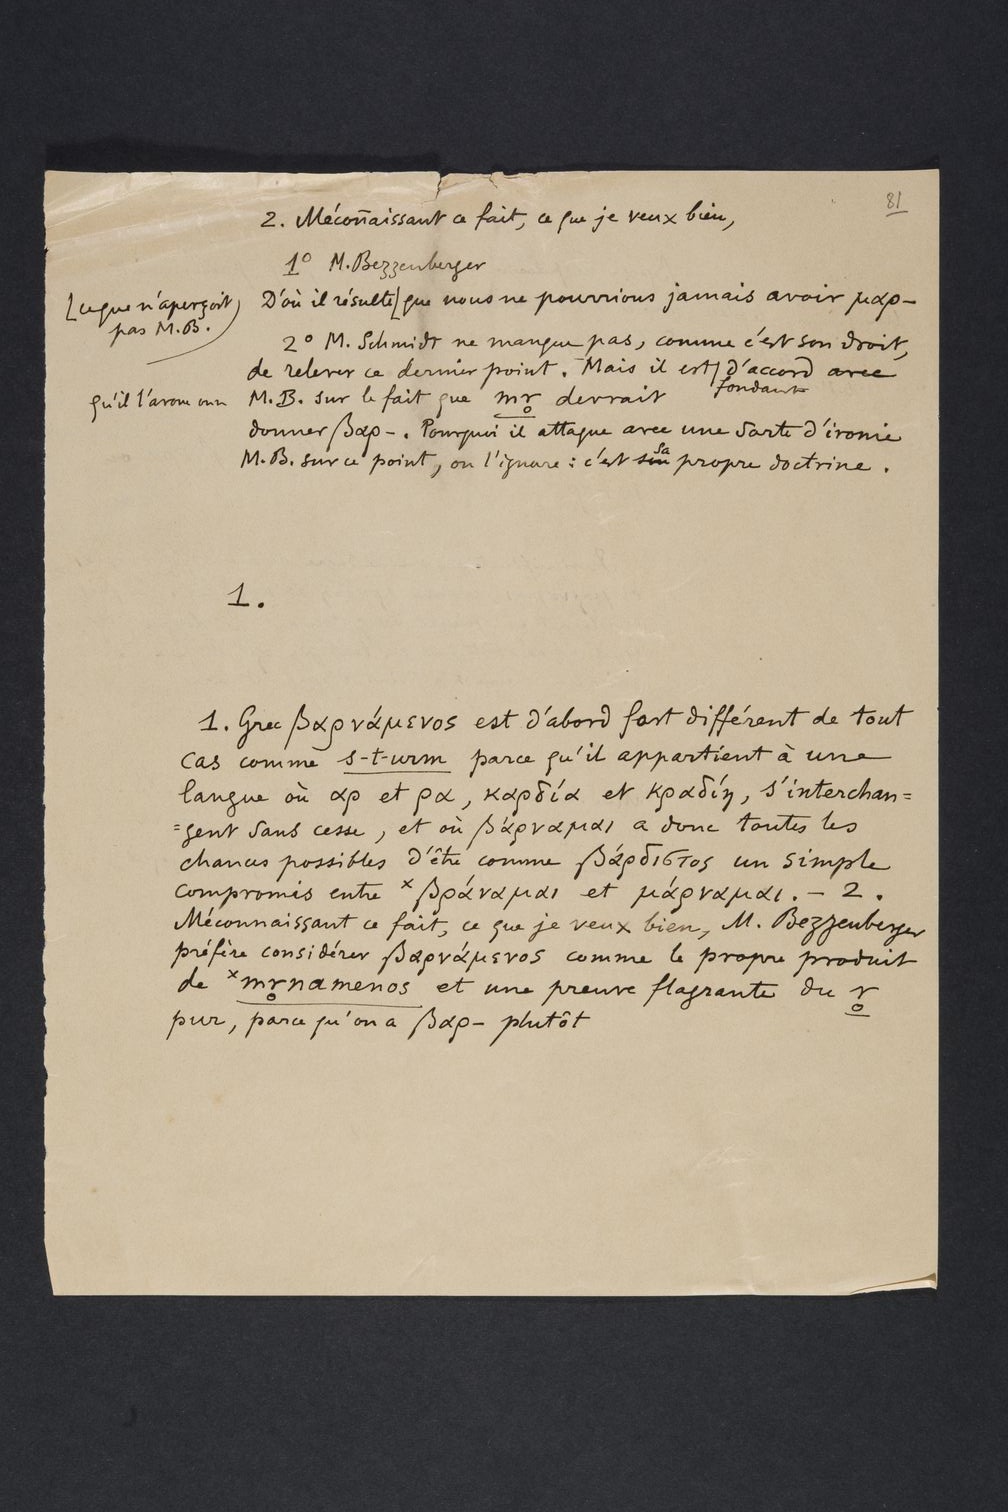 81
2. Mécon̄aissant ce fait, ce que je veux bien,
1° M. Bezzenberger
[ce que n'aperçoit
pas M. B.
D'où il résulte[ que nous ne pourrions jamais avoir μαρ–
2° M. Schmidt ne manque pas, comme c'est son droit,
de relever ce dernier point. Mais il est[ d'accord avec
fondant
qu'il l'avoue
M. B. sur le fait que mr̥ devrait
donner βαρ–. Pourquoi il attaque avec une sorte d'ironie
sa
M. B. sur ce point, on l'ignore : c'est son propre doctrine.
1.
1. Grec βαρνάμενος est d'abord fort différent de tout
cas comme s-t-urm parce qu'il appartient à une
langue où αρ et ρα, καρδία et κραδίη, s'interchan=
=gent sans cesse, et où βάρναμαι a donc toutes les
chances possibles d'être comme βάρδιστος un simple
compromis entre ˣβράναμαι et μάρναμαι. – 2.
Méconnaissant ce fait, ce que je veux bien, M. Bezzenberger
préfère considérer βαρνάμενος comme le propre produit
de ˣmr̥namenos et une preuve flagrante du r̥
pur, parce qu'on a βαρ– plutôt